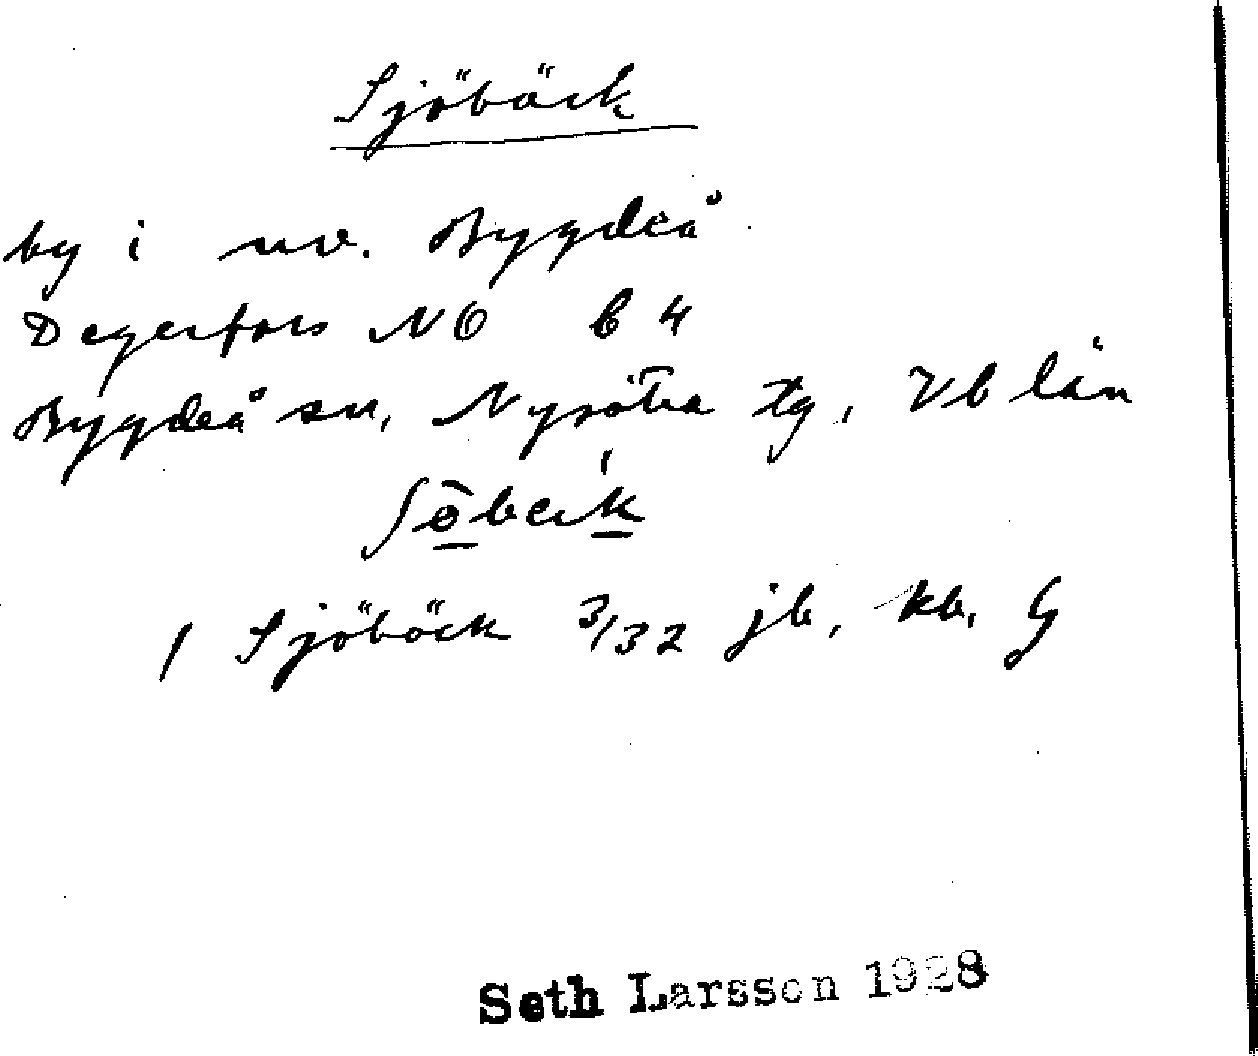 Sjöbäck
by i nv. Bygdeå
Degerfors NO b 4
Bygdeå sn, Nysätra tg, Vb län
1 Sjöbäck 3/32 jb, kb, G
Seth Larsson 1928